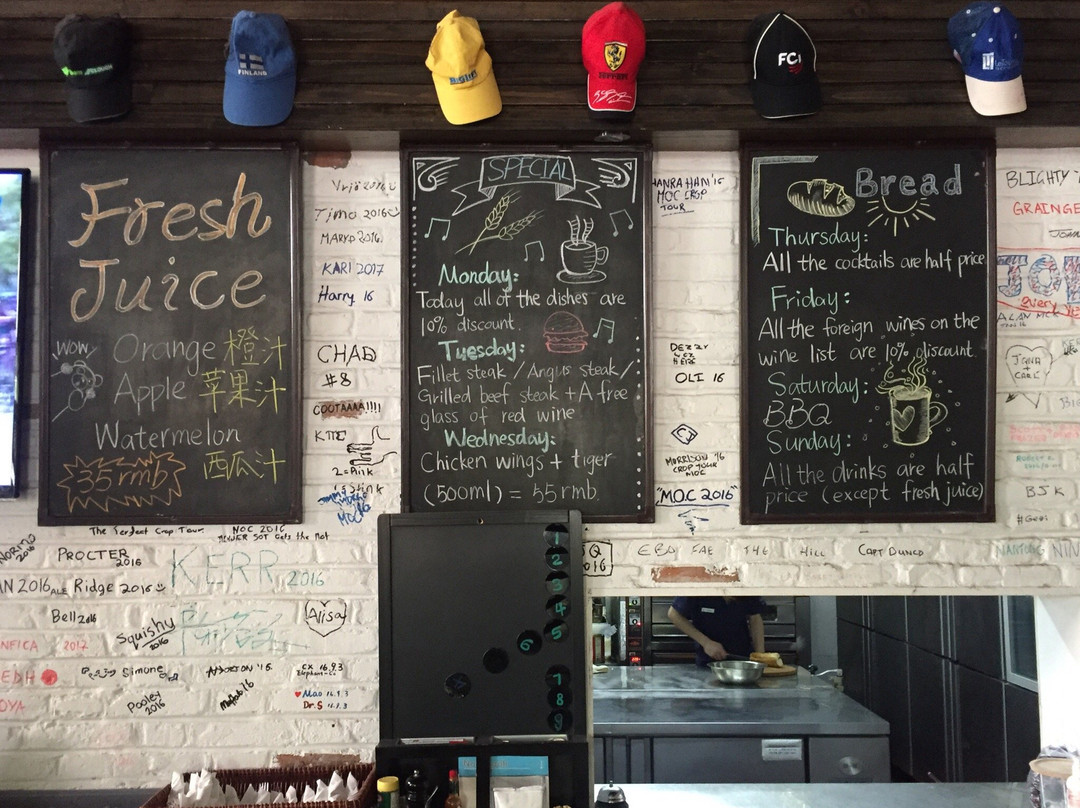 FINLAND
FERRARI
FCi
Fresh
Juice
WOW
Orange 橙汁
Apple 苹果汁
Watermelon
西瓜汁
55rmb
SPECIAL
Monday:
Today all of the dishes are
10% discount.
Tuesday:
Fillet steak / Angus steak/
Grilled beef steak + A free
glass of red wine
Wednesday:
Chicken wings + tiger
(500ml) = 55rmb.
Bread
Thursday:
All the cocktails are half price
Friday:
All the foreign wines on the
wine list are 10% discount.
Saturday:
BBQ
Sunday:
All the drinks are half
price (except fresh juice)
Timo 2016
KARI 2017
Harry 16
CHAD
#8
COOTAAAA!!!!
HANRAHAN '16
MOC CROP
TOUR
DEZZY
WZ
HERE
OLI 16
MORRISON '16
CROP TOUR
MOC
"MOC 2016"
BLIGHTY
GRAINGE
BJK
The Perfect Crop Tour
MOC 2016
PROCTER
2016
KERR 2016
Ridge 2016
Bell 2016
Squishy
2016
Alisa
2017
Simone
Pooley
2016
CX 16.9.3
Mao 16.9.3
Dr.S 16.9.3
1
2
3
4
5
6
7
8
9